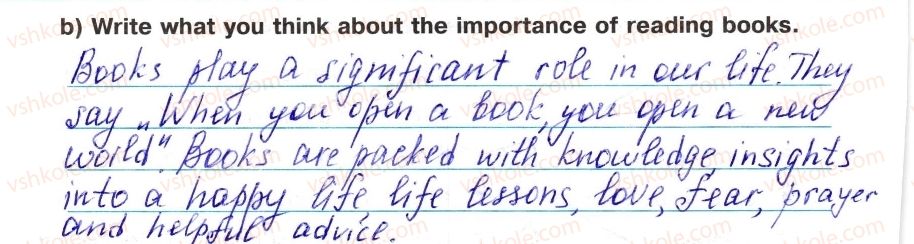 b) Write what you think about the importance of reading books.
Books play a significant role in our life. They
say „When you open a book, you open a new
world". Books are packed with knowledge, insights
into a happy life, life lessons, love, fear, prayer
and helpful advice.